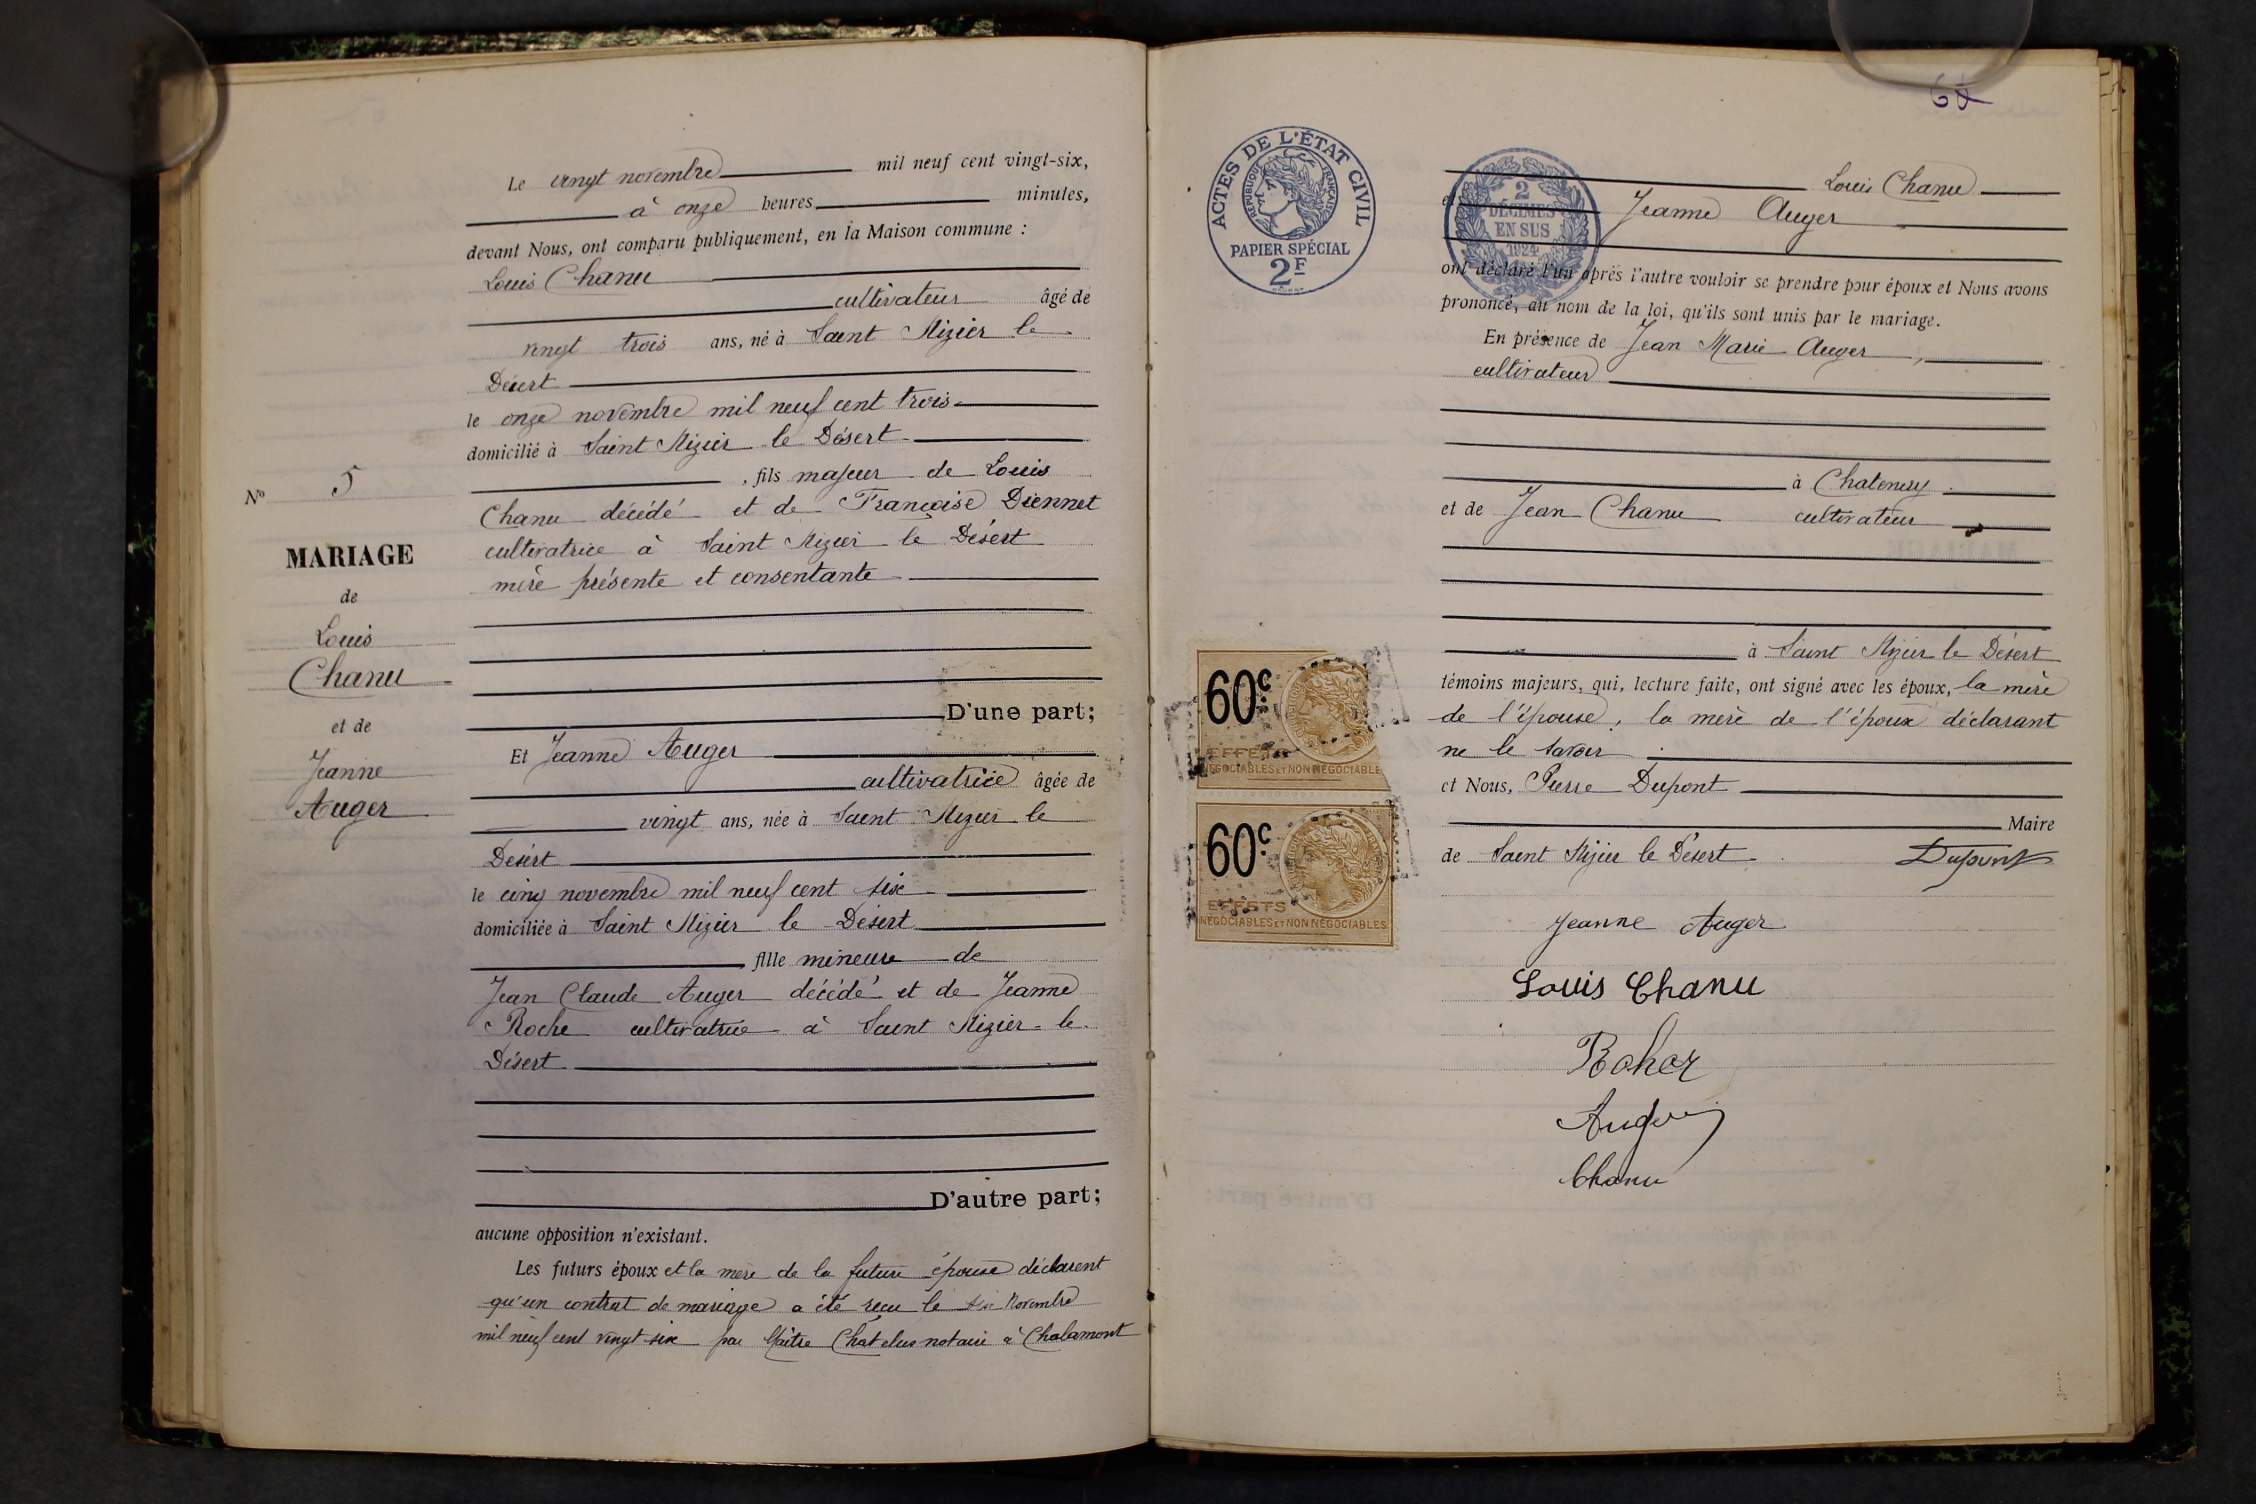 Nº 5
MARIAGE
de
Louis
Chanu
et de
Jeanne
Auger
Le vingt novembre mil neuf cent vingt-six,
à onze heures minutes,
devant Nous, ont comparu publiquement, en la Maison commune :
Louis Chanu
cultivateur âgé de
vingt trois ans, né à Saint Nizier le
Désert
le onze novembre mil neuf cent trois
domicilié à Saint Nizier le Désert
, fils majeur de Louis
Chanu décédé et de Françoise Diennet
cultivatrice à Saint Nizier le Désert
mère présente et consentante
D'une part;
Et Jeanne Auger
cultivatrice âgée de
vingt ans, née à Saint Nizier le
Désert
le cinq novembre mil neuf cent six
domiciliée à Saint Nizier le Désert
fille mineure de
Jean Claude Auger décédé et de Jeanne
Roche cultivatrice à Saint Nizier le
Désert
D'autre part;
aucune opposition n'existant.
Les futurs époux et la mère de la future épouse déclarent
qu'un contrat de mariage a été reçu le six Novembre
mil neuf cent vingt six par Maître Chatelus notaire à Chalamont
ACTES DE L'ÉTAT CIVIL
RÉPUBLIQUE FRANÇAISE
PAPIER SPÉCIAL
2F
2
DÉCIMES
EN SUS
1924
60c
EFFETS
NÉGOCIABLES ET NON NÉGOCIABLES
60c
EFFETS
NÉGOCIABLES ET NON NÉGOCIABLES
Louis Chanu
et Jeanne Auger
ont déclaré l'un après l'autre vouloir se prendre pour époux et Nous avons
prononcé, au nom de la loi, qu'ils sont unis par le mariage.
En présence de Jean Marie Auger,
cultivateur
à Chatenay
et de Jean Chanu cultivateur
à Saint Nizier le Désert
témoins majeurs, qui, lecture faite, ont signé avec les époux, la mère
de l'épouse, la mère de l'époux déclarant
ne le savoir.
et Nous, Pierre Dupont
Maire
de Saint Nizier le Désert Dupont
Jeanne Auger
Louis Chanu
Auger
Chanu